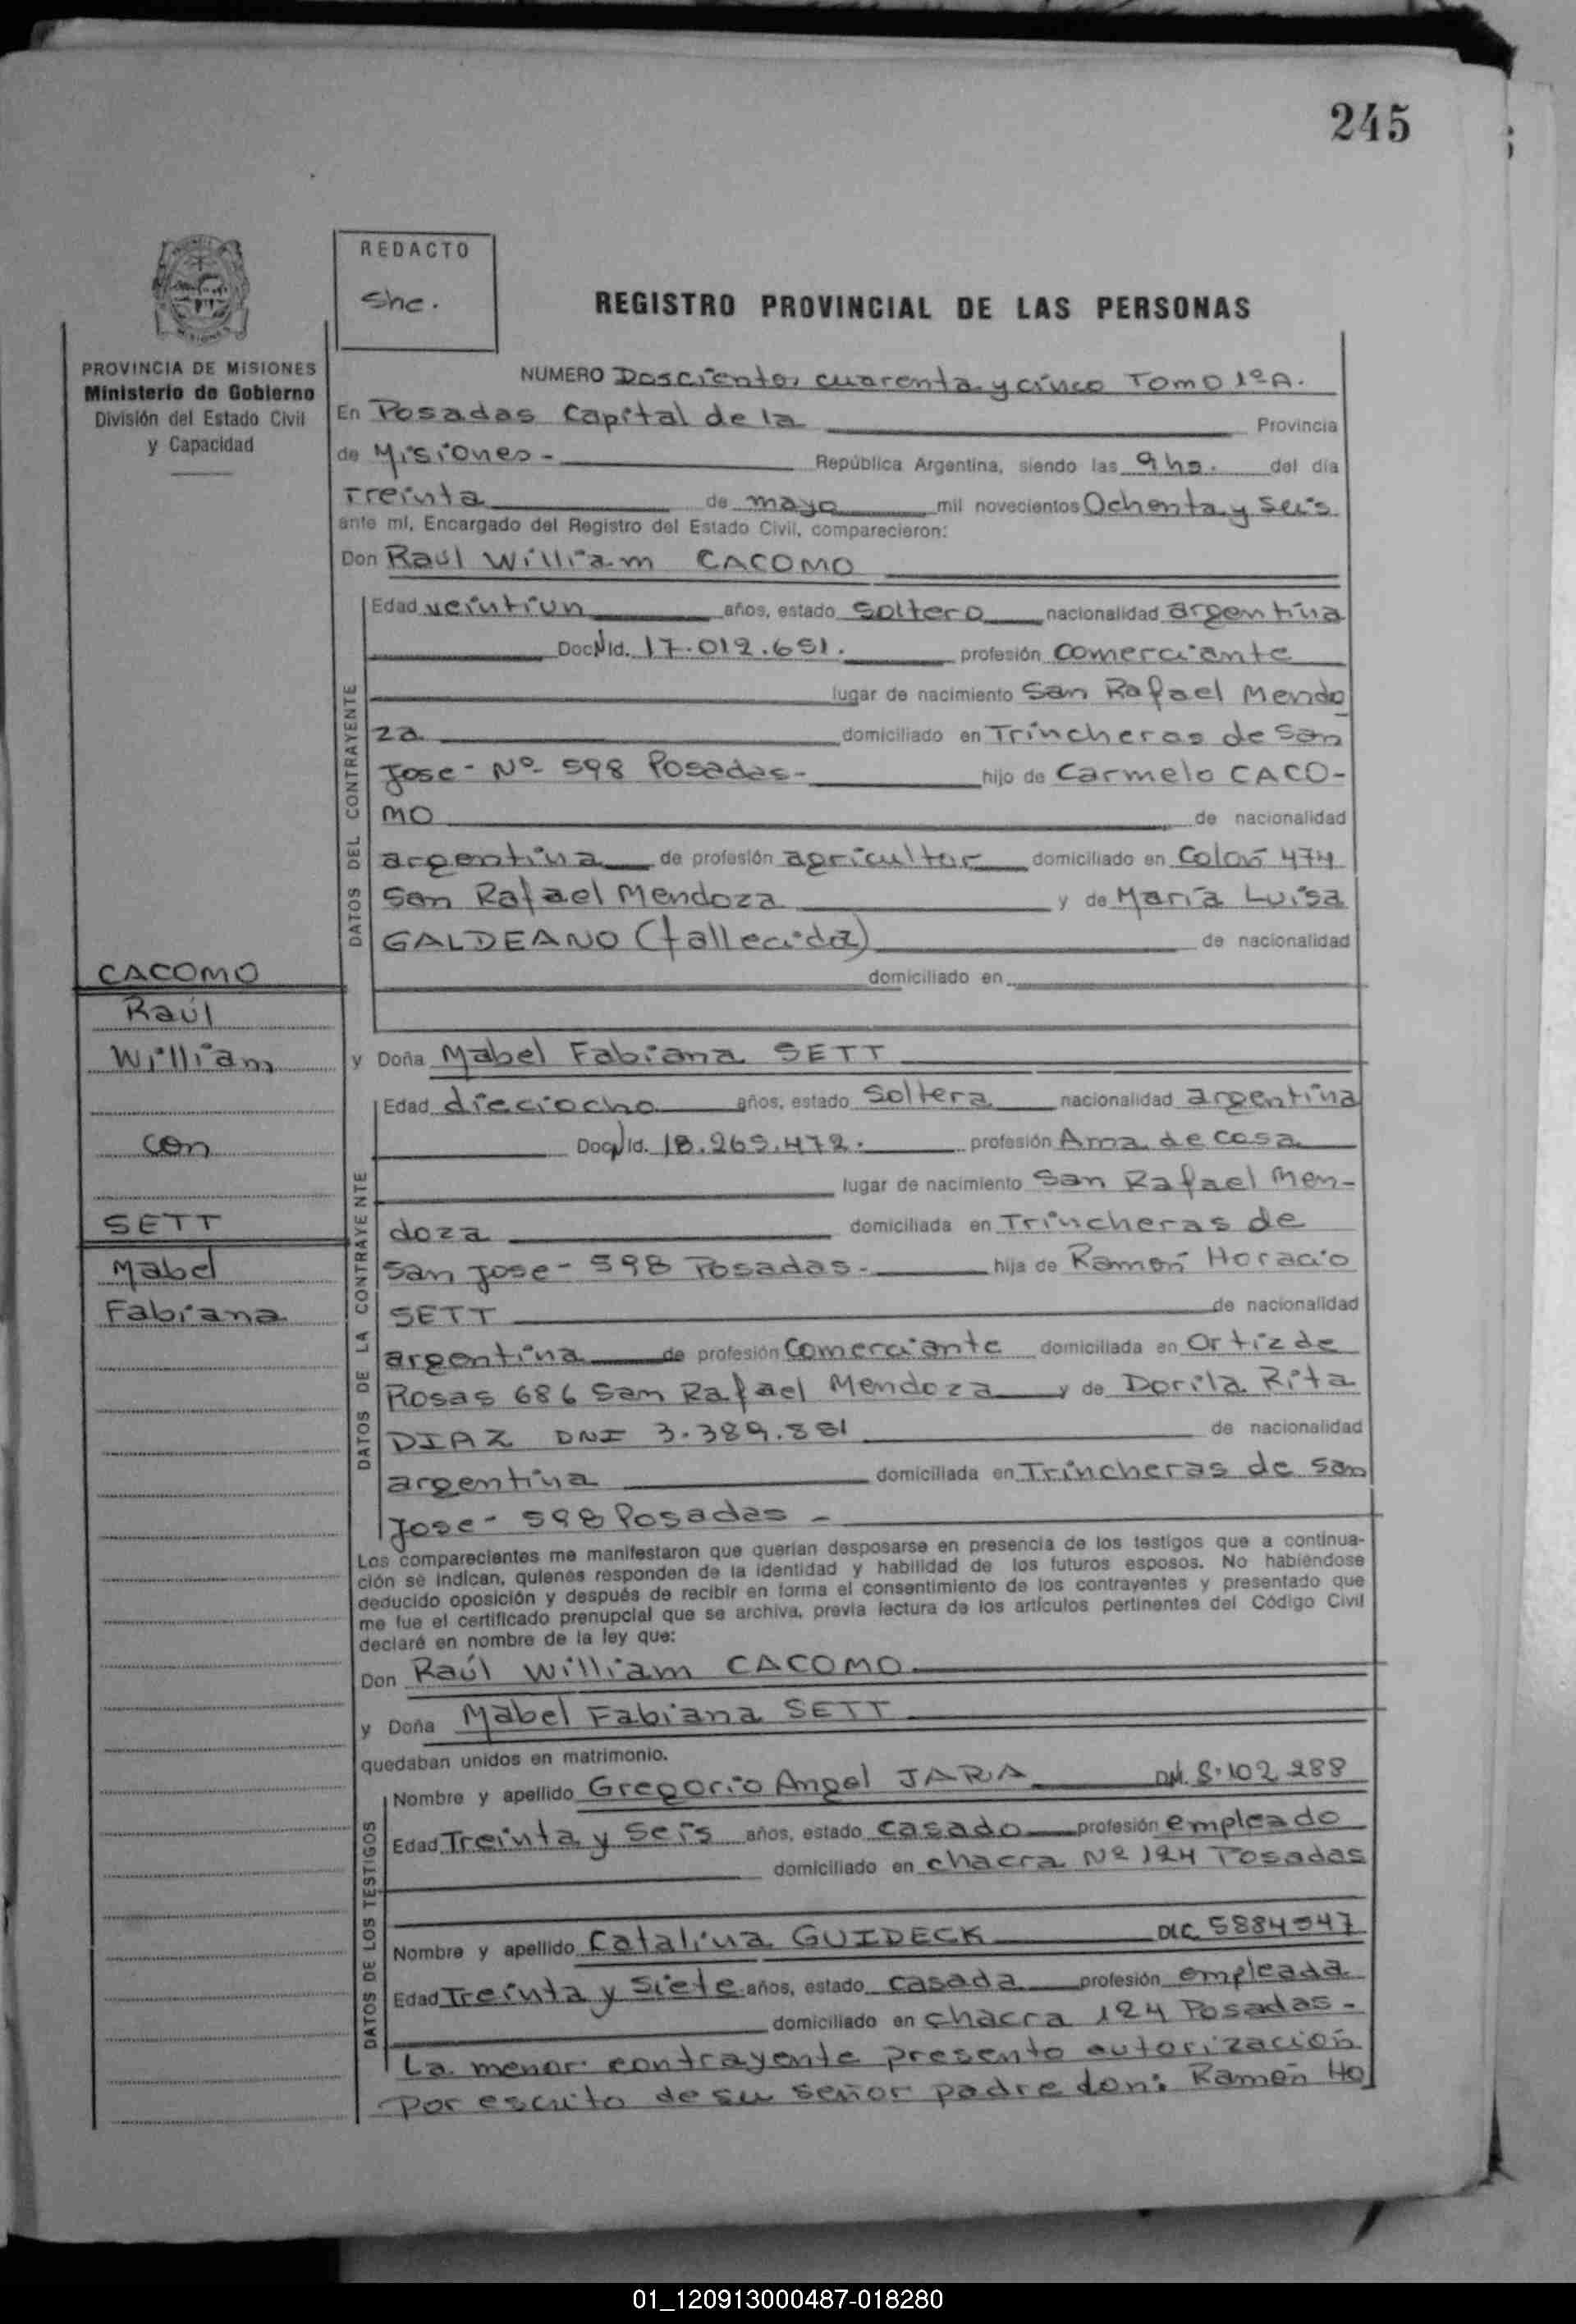 245
REDACTO
She.
REGISTRO PROVINCIAL DE LAS PERSONAS
PROVINCIA DE MISIONES
Ministerio de Gobierno
División del Estado Civil
y Capacidad
NUMERO Doscientos cuarenta y cinco Tomo 1º A.
En Posadas Capital de la Provincia
de Misiones - República Argentina, siendo las 9 hs. del día
Treinta de mayo mil novecientos Ochenta y Seis
ante mí, Encargado del Registro del Estado Civil, comparecieron:
Don Raúl William CACOMO
DATOS DEL CONTRAYENTE
Edad veintiun años, estado Soltero nacionalidad argentina
Doc N Id. 17.012.651. profesión Comerciante
lugar de nacimiento San Rafael Mendo
za domiciliado en Trincheras de San
Jose - Nº 598 Posadas - hijo de Carmelo CACO-
MO de nacionalidad
argentina de profesión agricultor domiciliado en Colón 474
San Rafael Mendoza y de María Luisa
GALDEANO (fallecida) de nacionalidad
domiciliado en
CACOMO
Raúl
William
con
SETT
Mabel
Fabiana
y Doña Mabel Fabiana SETT
DATOS DE LA CONTRAYENTE
Edad dieciocho años, estado Soltera nacionalidad argentina
Doc N Id. 18.269.472. profesión Ama de casa
lugar de nacimiento San Rafael Men-
doza domiciliada en Trincheras de
San Jose - 598 Posadas - hija de Ramón Horacio
SETT de nacionalidad
argentina de profesión Comerciante domiciliada en Ortiz de
Rosas 686 San Rafael Mendoza y de Dorila Rita
DIAZ DNI 3.389.881 de nacionalidad
argentina domiciliada en Trincheras de San
Jose - 598 Posadas -
Los comparecientes me manifestaron que querían desposarse en presencia de los testigos que a continua-
ción se indican, quienes responden de la identidad y habilidad de los futuros esposos. No habiéndose
deducido oposición y después de recibir en forma el consentimiento de los contrayentes y presentado que
me fue el certificado prenupcial que se archiva, previa lectura de los artículos pertinentes del Código Civil
declaré en nombre de la ley que:
Don Raúl William CACOMO
y Doña Mabel Fabiana SETT
quedaban unidos en matrimonio.
DATOS DE LOS TESTIGOS
Nombre y apellido Gregorio Angel JARA DNI. 8.102.288
Edad Treinta y Seis años, estado casado profesión empleado
domiciliado en chacra Nº 124 Posadas
Nombre y apellido Catalina GUIDECK DLC 5884547
Edad Treinta y Siete años, estado casada profesión empleada
domiciliado en chacra 124 Posadas -
La menor contrayente presento autorización
por escrito de su señor padre don: Ramón Ho
01_120913000487-018280